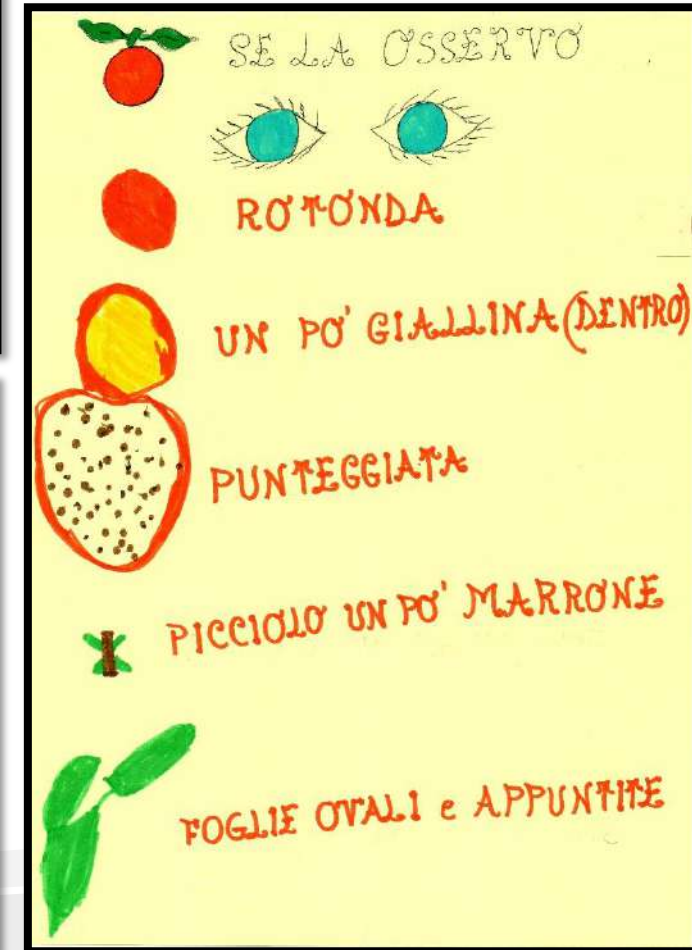 SE LA OSSERVO
ROTONDA
UN PO' GIALLINA (DENTRO)
PUNTEGGIATA
PICCIOLO UN PO' MARRONE
FOGLIE OVALI e APPUNTITE